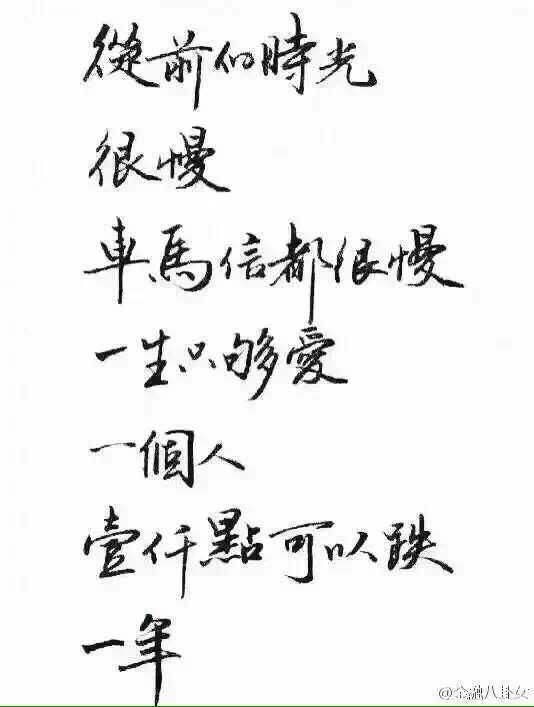 從前的時光
很慢
車馬信都很慢
一生只夠愛
一個人
壹仟點可以跌
一年
@金融八卦女